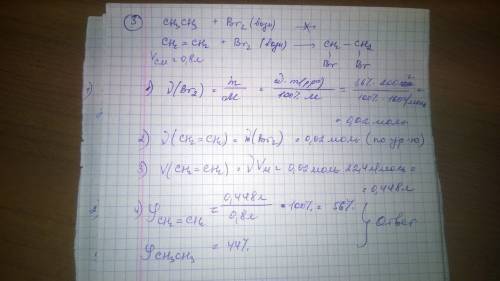 3
CH₃CH₃ + Br₂ (водн) ↛
CH₂=CH₂ + Br₂ (водн) → CH₂ – CH₂
Br Br
Vсм = 0,8л
1) ν(Br₂) = m/M = ω·m(рра)/100%·M = 1,6%·200г/100%·160г/моль =
= 0,02 моль
2) ν(CH₂=CH₂) = ν(Br₂) = 0,02 моль (по ур-ю)
3) V(CH₂=CH₂) = ν·Vм = 0,02 моль·22,4л/моль =
= 0,448л
4) φ CH₂=CH₂ = 0,448л/0,8л · 100% = 56%
Ответ
φ CH₃CH₃ = 44%